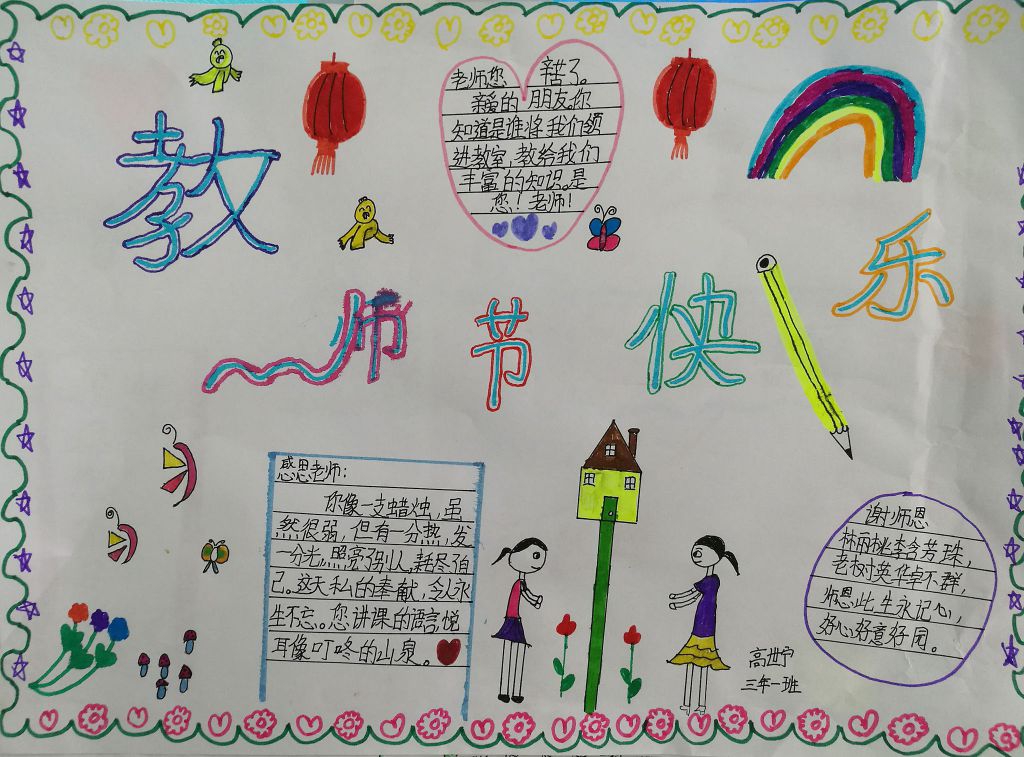 教师节快乐
老师您 辛苦了。
亲爱的 朋友,你
知道是谁将我们领
进教室,教给我们
丰富的知识。是
您!老师!
感恩老师:
你像一支蜡烛,虽
然很弱,但有一分热,发
一分光,照亮了别人,耗尽了自
己。这无私的奉献,令人永
生不忘。您讲课的语言悦
耳像叮咚的山泉。
谢师恩
林雨桃李含芳珠,
老树英华卓不群,
师恩此生永记心,
好心好意好同。
三年一班